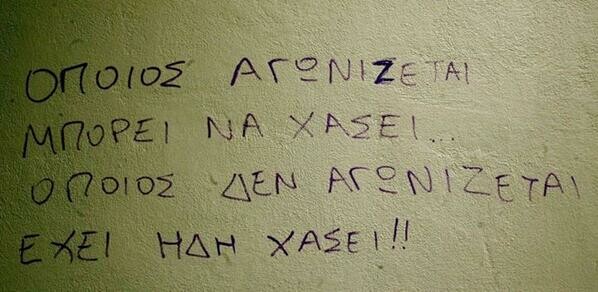 ΟΠΟΙΟΣ ΑΓΩΝΙΖΕΤΑΙ
ΜΠΟΡΕΙ ΝΑ ΧΑΣΕΙ...
ΟΠΟΙΟΣ ΔΕΝ ΑΓΩΝΙΖΕΤΑΙ
ΕΧΕΙ ΗΔΗ ΧΑΣΕΙ!!